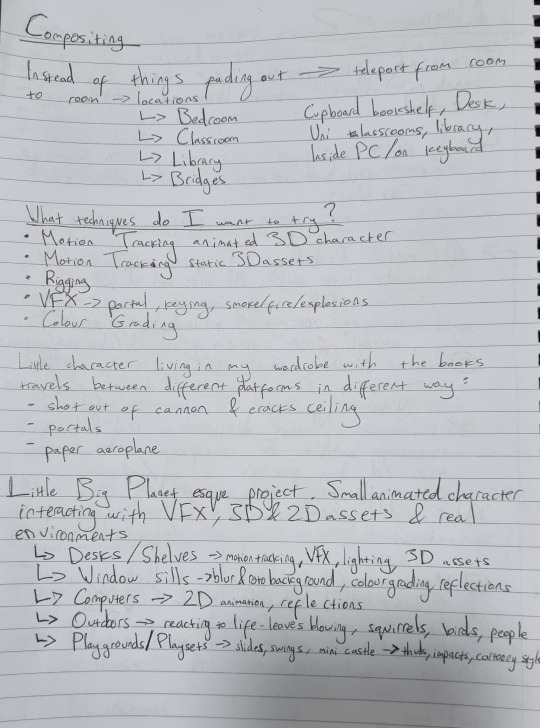 Compositing
Instead of things fading out → teleport from room
to room → locations
↳ Bedroom
↳ Classroom
↳ Library
↳ Bridges
Cupboard bookshelf, Desk,
Uni classrooms, library,
Inside PC/on keyboard
What techniques do I want to try?
• Motion Tracking animated 3D character
• Motion Tracking static 3D assets
• Rigging
• VFX → portal, keying, smoke/fire/explosions
• Colour Grading
Little character living in my wardrobe with the books
travels between different platforms in different way:
- shot out of cannon & cracks ceiling
- portals
- paper aeroplane
Little Big Planet esque project. Small animated character
interacting with VFX, 3D & 2D assets & real
environments
↳ Desks/Shelves → motion tracking, VFX, lighting, 3D assets
↳ Window sills → blur & roto background, colour grading, reflections
↳ Computers → 2D animation, reflections
↳ Outdoors → reacting to life - leaves blowing, squirrels, birds, people
↳ Playgrounds/Playsets → slides, swings, mini castle → impacts, cartoony style